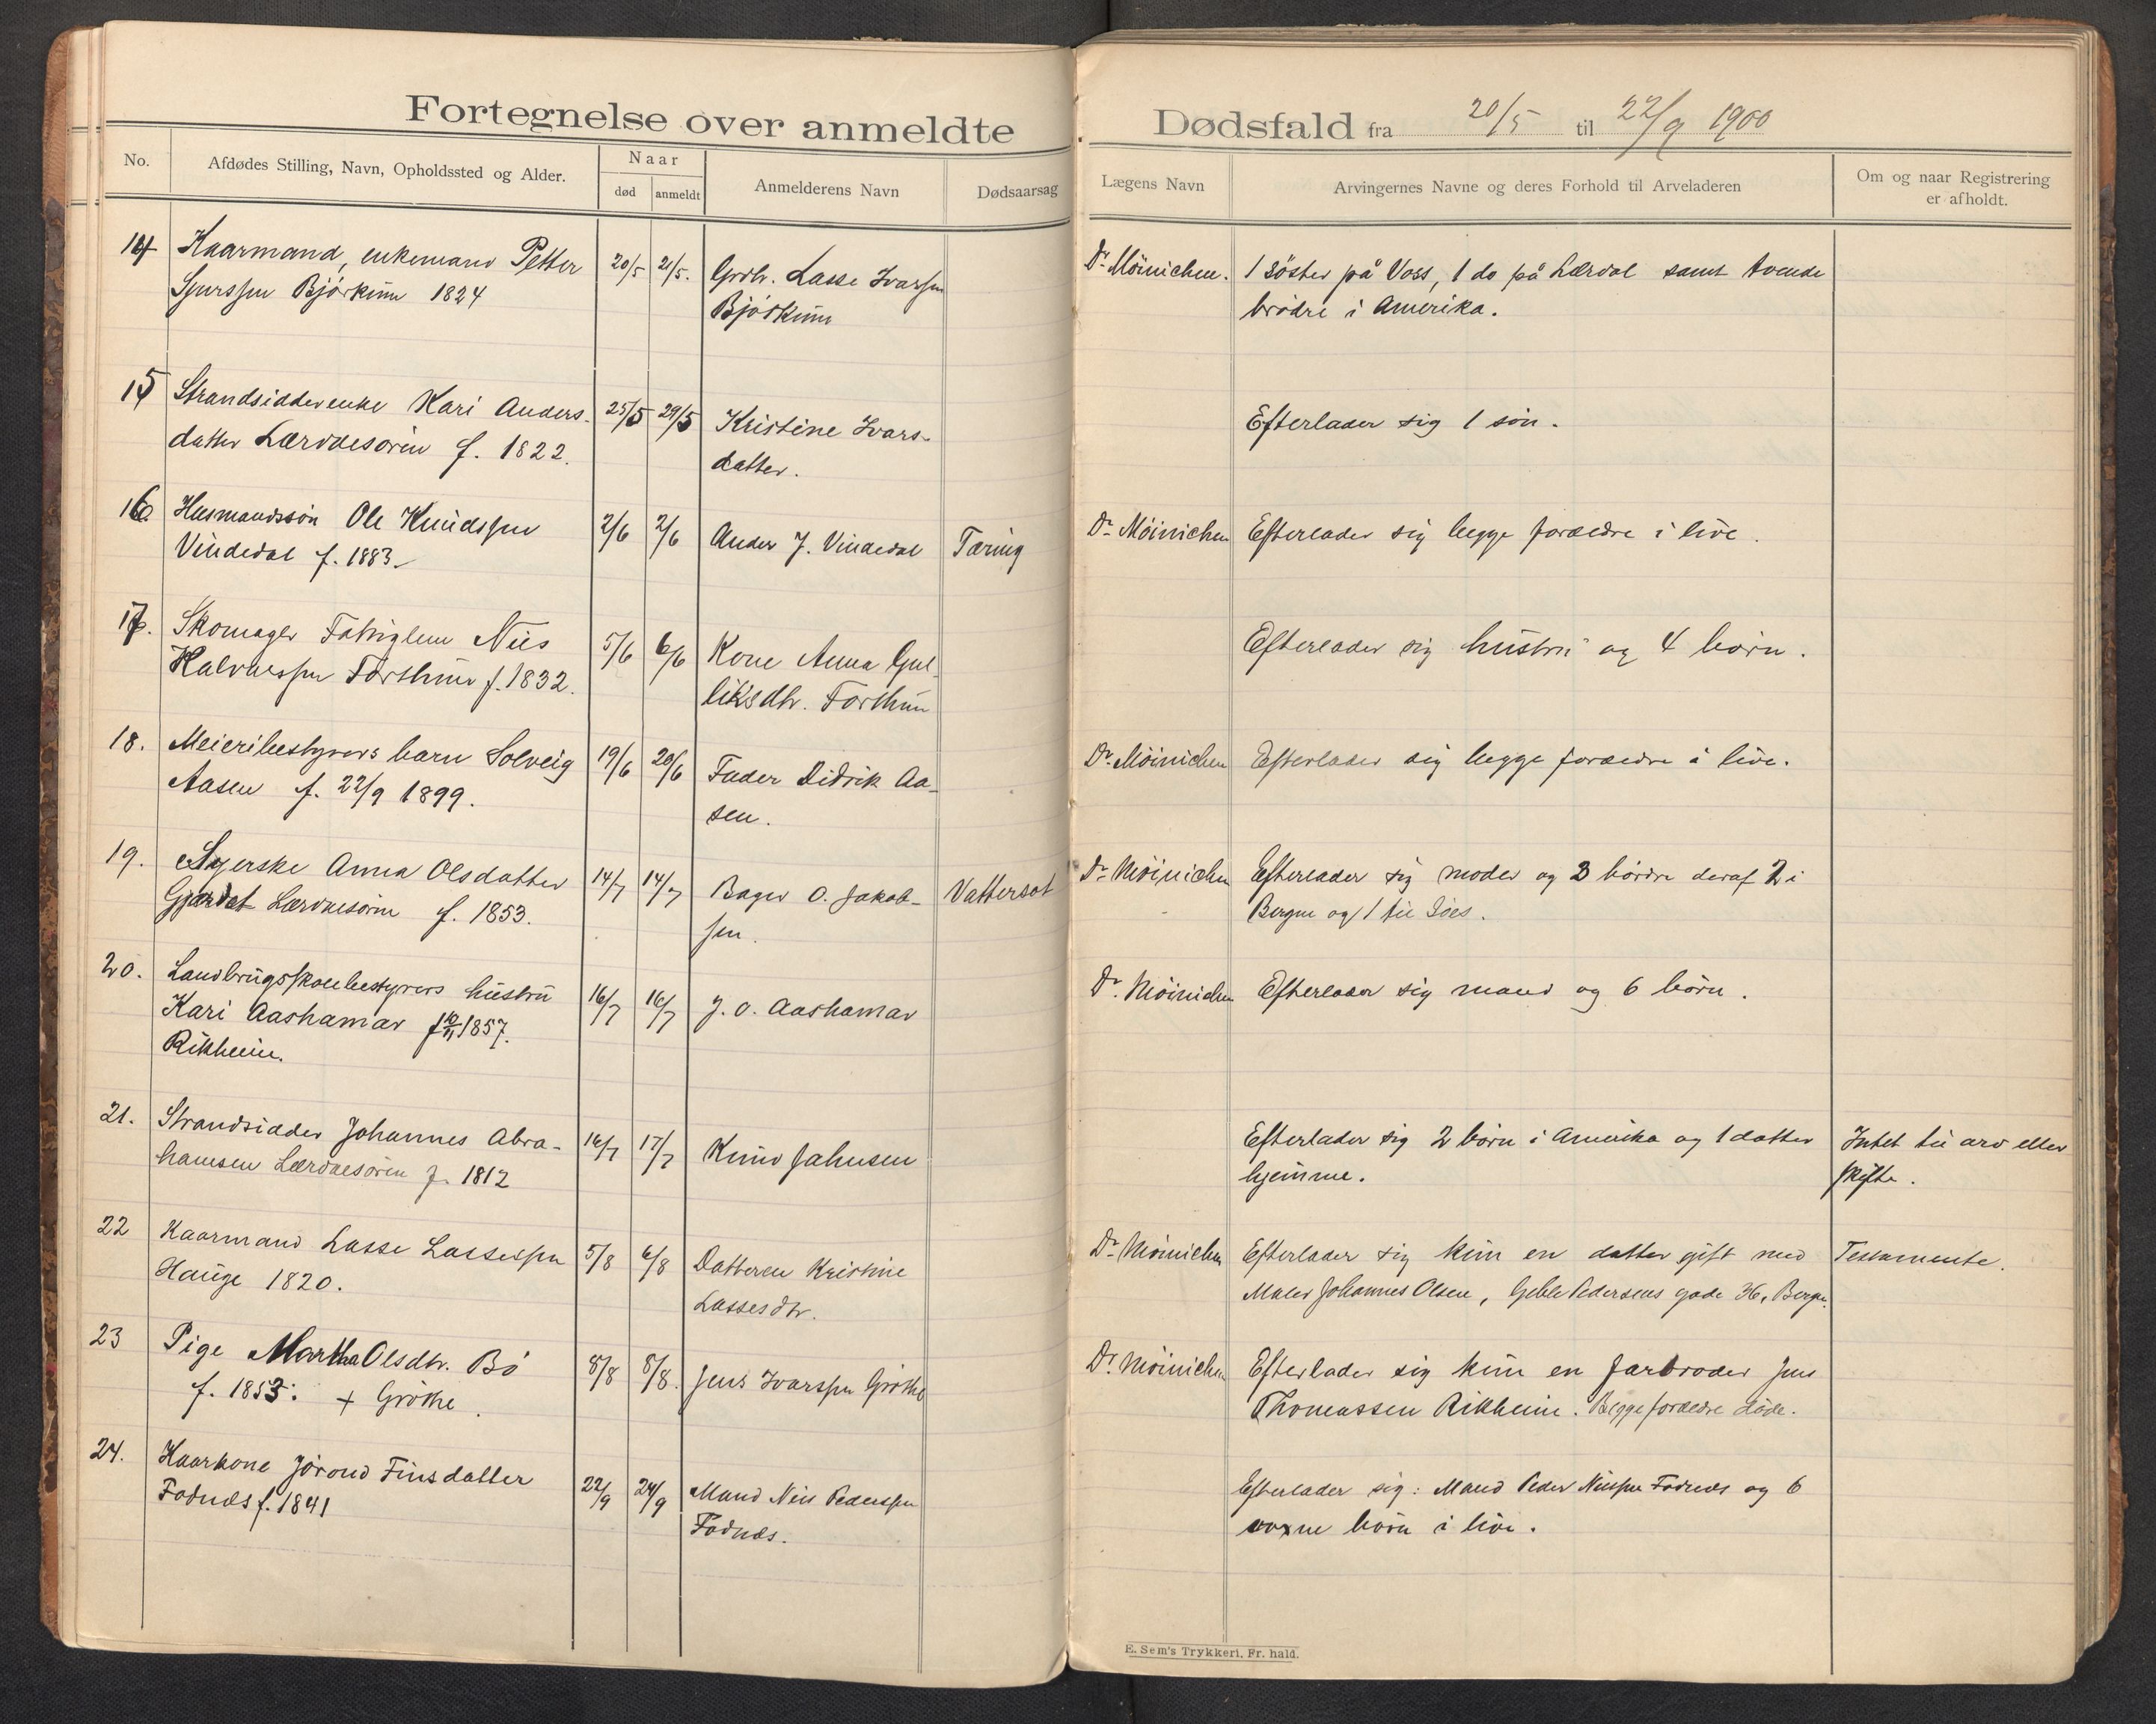 Fortegnelse over anmeldte
No.
Afdødes Stilling, Navn, Opholdssted og Alder.
Naar
død
anmeldt
Anmelderens Navn
Dødsaarsag
14 Kaarmand, enkemand Petter 20/5 21/5. Grdbr. Lasse Ivarssen
Sjurssen Bjørkum 1824 Bjørkum
15 Strandsidderenke Kari Anders- 25/5 29/5 Kristine Ivars-
datter Lærdalsøren f. 1822. datter.
16. Husmandssøn Ole Knudssen 2/6 2/6 Anders J. Vindedal Tæring
Vindedal f. 1883.
17. Skomager Fattiglem Nils 5/6 6/6 Kone Anna Gul-
Halvorssen Forthun f. 1832. liksdtr. Forthun
18. Meieribestyrers barn Solveig 19/6 20/6 Fader Didrik Aa-
Aasen f. 22/9 1899. sen.
19. Syerske Anna Olsdatter 14/7 14/7 Bager O. Jakob- Vattersot
Gjærdet Lærdalsøren f. 1853. sen.
20. Landbrugsskolebestyrers hustru 16/7 16/7 J. O. Aashamar
Kari Aashamar f 10/11 1857.
Rikheim.
21. Strandsidder Johannes Abra- 16/7 17/7 Knud Johnsen
hamsen Lærdalsøren f. 1812
22 Kaarmand Lasse Lassessen 5/8 6/8 Datteren Kristine
Hauge 1820. Lassesdtr.
23 Pige Martha Olsdtr. Bø 8/8 8/8. Jens Ivarssen Grøthe
f. 1853. + Grøthe.
24. Kaarkone Jørond Finsdatter 22/9 24/9 Mand Nils Pederssen
Fodnæs f. 1841 Fodnæs.
Dødsfald fra 20/5 til 22/9 1900
Lægens Navn
Arvingernes Navne og deres Forhold til Arveladeren
Om og naar Registrering
er afholdt.
Dr. Möinichen. 1 søster på Voss, 1 do på Lærdal samt tvende
brødre i Amerika.
Efterlader sig 1 søn.
Dr. Möinichen Efterlader sig begge forældre i live.
Efterlader sig hustru og 4 børn.
Dr. Möinichen Efterlader sig begge forældre i live.
Dr. Möinichen Efterlader sig moder og 3 deraf 2 i
Bergen og 1 til
Dr. Möinichen Efterlader sig mand og 6 børn.
Efterlader sig 2 børn i Amerika og 1 datter Intet til arv eller
hjemme. skifte.
Dr. Möinichen Efterlader sig kun en datter gift med Testamente.
Maler Johannes Olsen, Geble Pedersens gade 36, Bergen.
Dr. Möinichen Efterlader sig kun en farbroder Jens
Thomassen Rikheim. Begge forældre døde.
Efterlader sig: Mand Peder Nilssen Fodnæs og 6
voxne børn i live.
E. Sem's Trykkeri, Fr. hald.